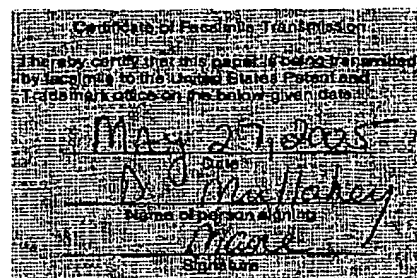 Certificate of Facsimile Transmission
I hereby certify that this paper is being transmitted
by facsimile to the United States Patent and
Trademark office on the below given date:
May 27, 2005
Date
D.
Name of person signing
Signature